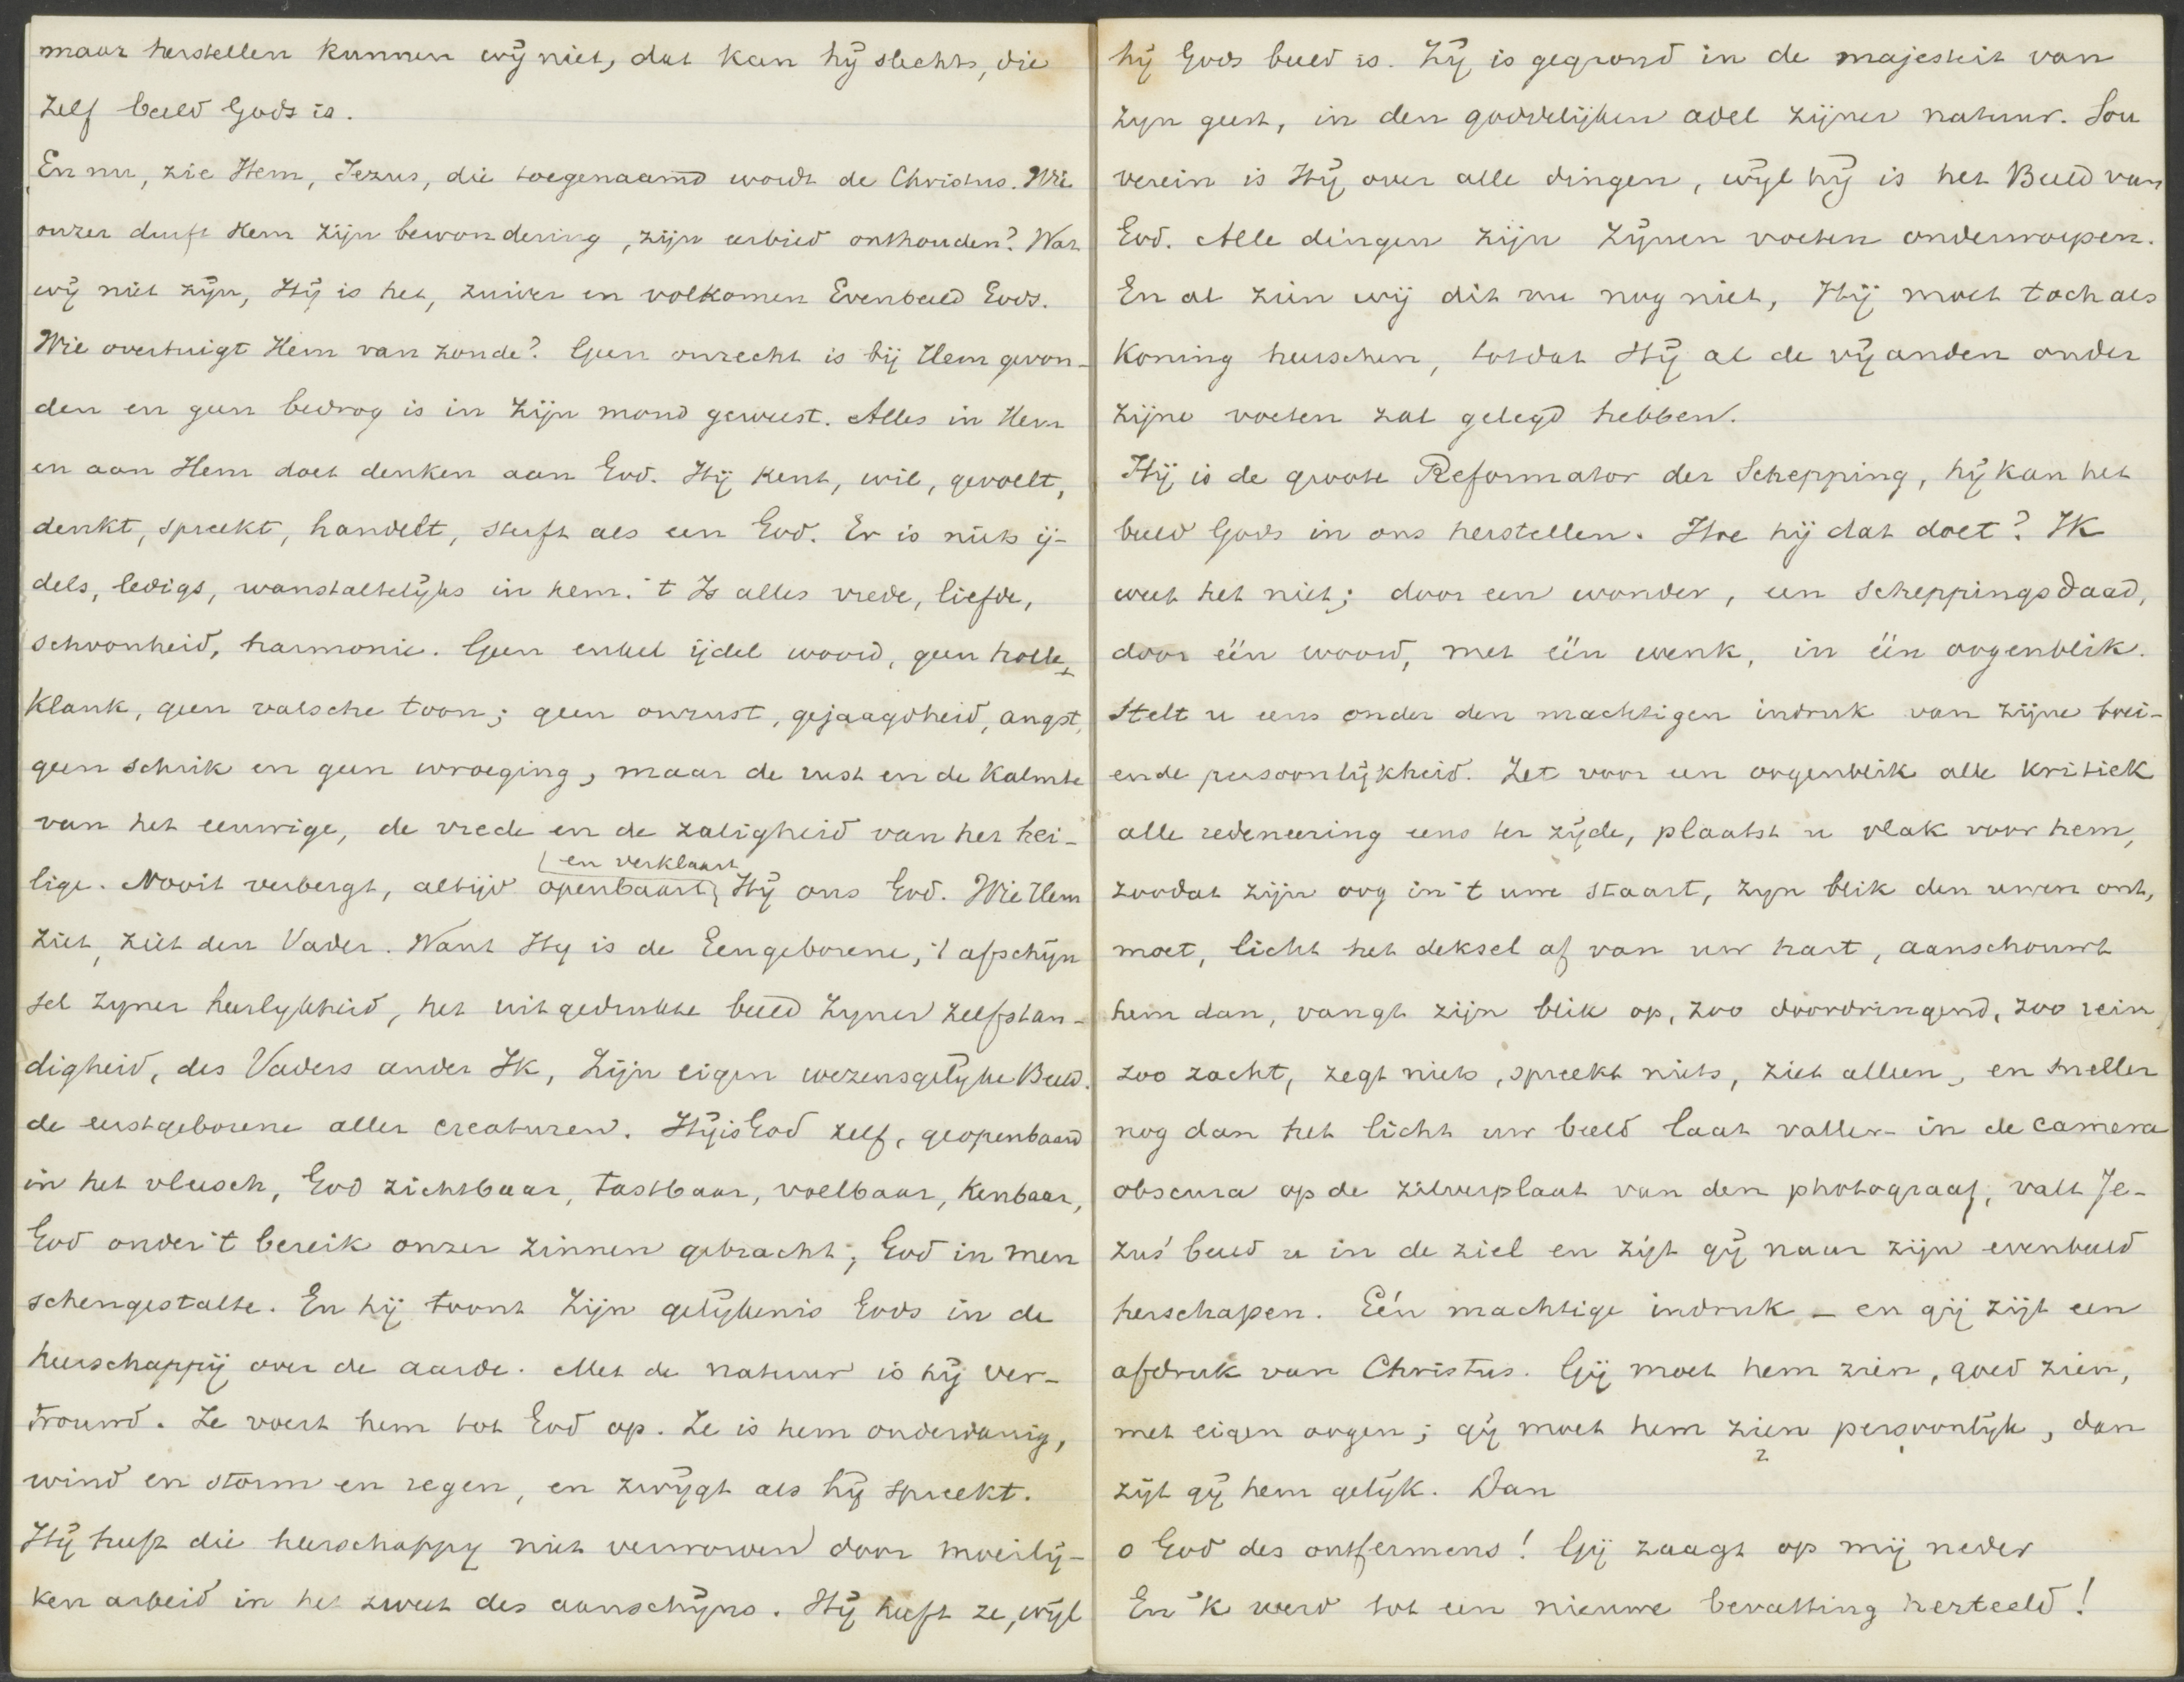 maar herstellen kunnen wij niet, dat kan hij slechts, die
zelf beeld Gods is.
En nu, zie Hem, Jezus, die toegenaamd wordt de Christus. Wie
onzer durft Hem zijn bewondering, zijn eerbied onthouden? Wat
wij niet zijn, Hij is het, zuiver en volkomen Evenbeeld Gods.
Wie overtuigt Hem van zonde? Geen onrecht is bij Hem gevon-
den en geen bedrog is in zijn mond geweest. Alles in Hem
en aan Hem doet denken aan God. Hij kent, wil, gevoelt,
denkt, spreekt, handelt, sterft als een God. Er is niets ij-
dels, ledigs, wanstaltelijks in hem. 't Is alles vrede, liefde,
schoonheid, harmonie. Geen enkel ijdel woord, geen holle
klank, geen valsche toon; geen onrust, gejaagdheid, angst,
geen schrik en geen wroeging, maar de rust en de kalmte
van het eeuwige, de vrede en de zaligheid van het hei-
lige. Nooit verbergt, altijd openbaart en verklaart Hij ons God. Wie Hem
ziet, ziet den Vader. Want Hij is de Eengeborene, 't afschijn
sel zijner heerlijkheid, het uitgedrukte beeld zijner zelfstan-
digheid, des Vaders ander Ik, zijn eigen wezensgelijke Beeld.
de eerstgeborene aller creaturen. Hij is God zelf, geopenbaard
in het vleesch, God zichtbaar, tastbaar, voelbaar, kenbaar,
God onder 't bereik onzer zinnen gebracht; God in men
schengestalte. En hij toont zijn gelijkenis Gods in de
heerschappij over de aarde. Met de natuur is hij ver-
trouwd. Ze voert hem tot God op. Ze is hem onderdanig,
wind en storm en regen, en zwijgt als hij spreekt.
Hij heeft die heerschappij niet verworven door moeilij-
ken arbeid in het zweet des aanschijns. Hij heeft ze, wijl
hij Gods beeld is. Zij is gegrond in de majesteit van
zijn geest, in den goddelijken adel zijner natuur. Sou
verein is Hij over alle dingen, wijl hij is het Beeld van
God. Alle dingen zijn zijnen voeten onderworpen.
En al zien wij dit nu nog niet, Hij moet toch als
Koning heerschen, totdat Hij al de vijanden onder
zijne voeten zal gelegd hebben.
Hij is de groote Reformator der Schepping, hij kan het
beeld Gods in ons herstellen. Hoe hij dat doet? Ik
weet het niet; door een wonder, een scheppingsdaad,
door één woord, met één wenk, in één oogenblik.
Stelt u eens onder den machtigen indruk van zijne boei-
ende persoonlijkheid. Zet voor een oogenblik alle kritiek
alle redeneering eens ter zijde, plaatst u vlak voor hem,
zoodat zijn oog in 't uwe staart, zijn blik den uwen ont,
moet, licht het deksel af van uw hart, aanschouwt
hem dan, vangt zijn blik op, zoo doordringend, zoo rein,
zoo zacht, zegt niets, spreekt niets, ziet alleen, en sneller
nog dan het licht uw beeld laat vallen in de camera
obscura op de zilverplaat van den photograaf, valt Je-
zus' beeld u in de ziel en zijt gij naar zijn evenbeeld
herschapen. Eén machtige indruk – en gij zijt een
afdruk van Christus. Gij moet hem zien, goed zien,
met eigen oogen; gij moet hem zien persoonlijk, dan
zijt gij hem gelijk. Dan
o God des ontfermens! Gij zaagt op mij neder
En 'k werd tot een nieuwe bevatting herteeld!